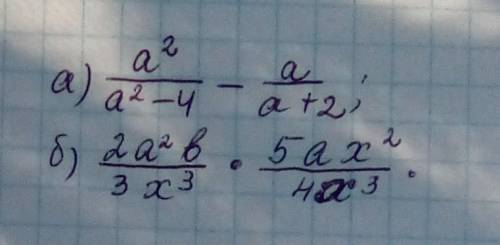 а) a²/(a²-4) - a/(a+2);
б) 2a²b/(3x³) · 5ax²/(4x³).